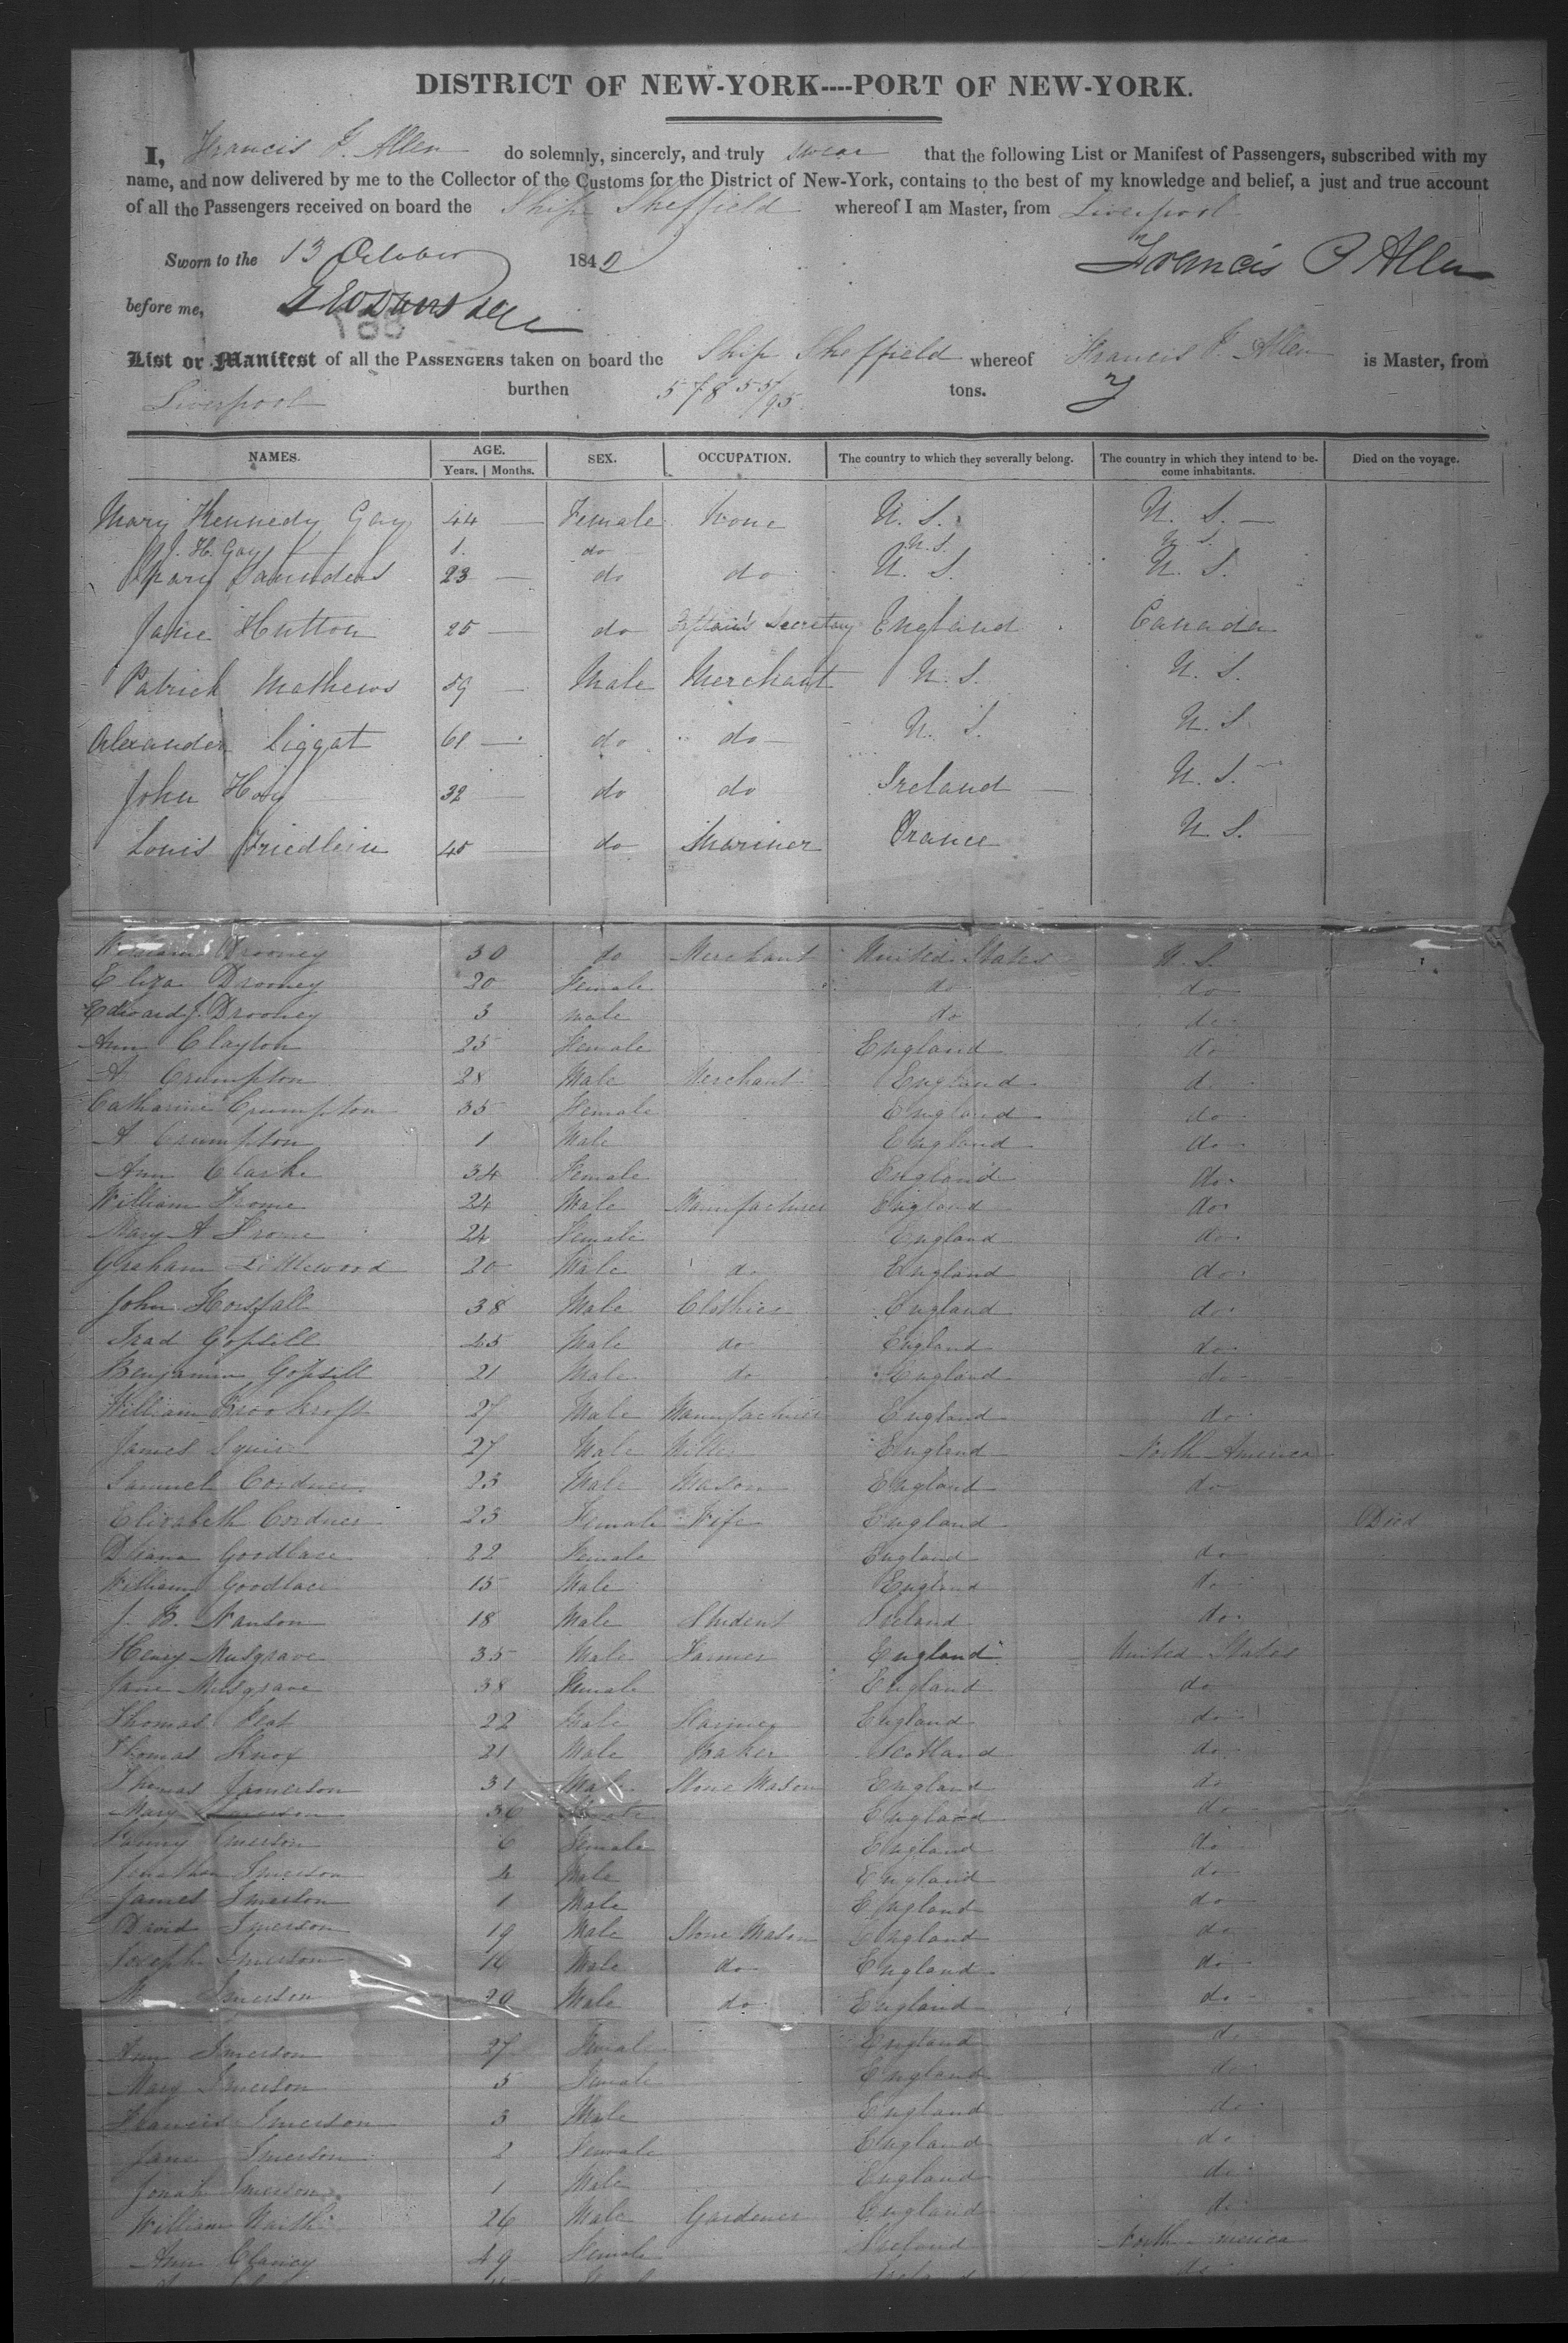 DISTRICT OF NEW-YORK----PORT OF NEW-YORK.
I, Francis P. Allen do solemnly, sincerely, and truly swear that the following List or Manifest of Passengers, subscribed with my
name, and now delivered by me to the Collector of the Customs for the District of New-York, contains to the best of my knowledge and belief, a just and true account
of all the Passengers received on board the Ship Sheffield whereof I am Master, from Liverpool
Sworn to the 13 October 1842 Francis P Allen
before me,
List or Manifest of all the PASSENGERS taken on board the Ship Sheffield whereof Francis P. Allen is Master, from
Liverpool burthen 578 55/95 tons.
NAMES. AGE. SEX. OCCUPATION. The country to which they severally belong. The country in which they intend to be- Died on the voyage.
Years. | Months. come inhabitants.
Mary Kennedy Gay 44 Female None U. S. U. S.
J. H. Gay 1. do U. S. U. S.
Mary Saunders 23 do do U. S. U. S.
Jane Hutton 25 do Captain's Secretary England Canada
Patrick Mathews 59 Male Merchant U. S. U. S.
Alexander Liggat 61 do do U. S. U. S.
John Hoy 32 do do Ireland U. S.
Louis Friedlein 45 do Mariner France U. S.
William Drooney 30 do Merchant United States U. S.
Eliza Drooney 20 Female do do
Edward J. Drooney 3 male do do
Ann Clayton 25 Female England do
A Crumpton 28 Male Merchant England do
Catharine Crumpton 35 Female England do
A Crumpton 1 Male England do
Ann Clarke 34 Female England do
William Frome 24 Male Manufacturer England do
Mary A Frome 24 Female England do
Graham Littlewood 20 Male do England do
John Horsfall 38 Male Clothier England do
Irad Gopsill 45 Male do England do
Benjamin Gopsill 21 Male do England do
William 27 Male Manufacturer England do
James Squire 27 Male Miller England North America
Samuel Cordner 23 Male Mason England do
Elizabeth Cordner 23 Female Wife England Died
Diana Goodlace 22 Female England do
William Goodlace 15 Male England do
J. B. Nanson 18 Male Student Ireland do
Henry Musgrave 35 Male Farmer England United States
Jane Musgrave 38 Female England do
Thomas 22 Male Farmer England do
Thomas Knox 21 Male Baker Scotland do
Thomas Jamerson 31 Male Stone Mason England do
Mary 36 England do
Fanny Emerson 6 Female England do
Jonathan Emerson 4 Male England do
James Emerson 1 Male England do
David Emerson 19 Male Stone Mason England do
Joseph Emerson 16 Male do England do
Emerson 29 Male do England do
Ann Emerson 27 Female England do
Mary Emerson 5 Female England do
Francis Emerson 3 Male England do
Jane Emerson 2 Female England do
Jonah Emerson 1 Male England do
William Waith 26 Male Gardener England do
Ann Clancy 49 Female Ireland North America
Ireland do